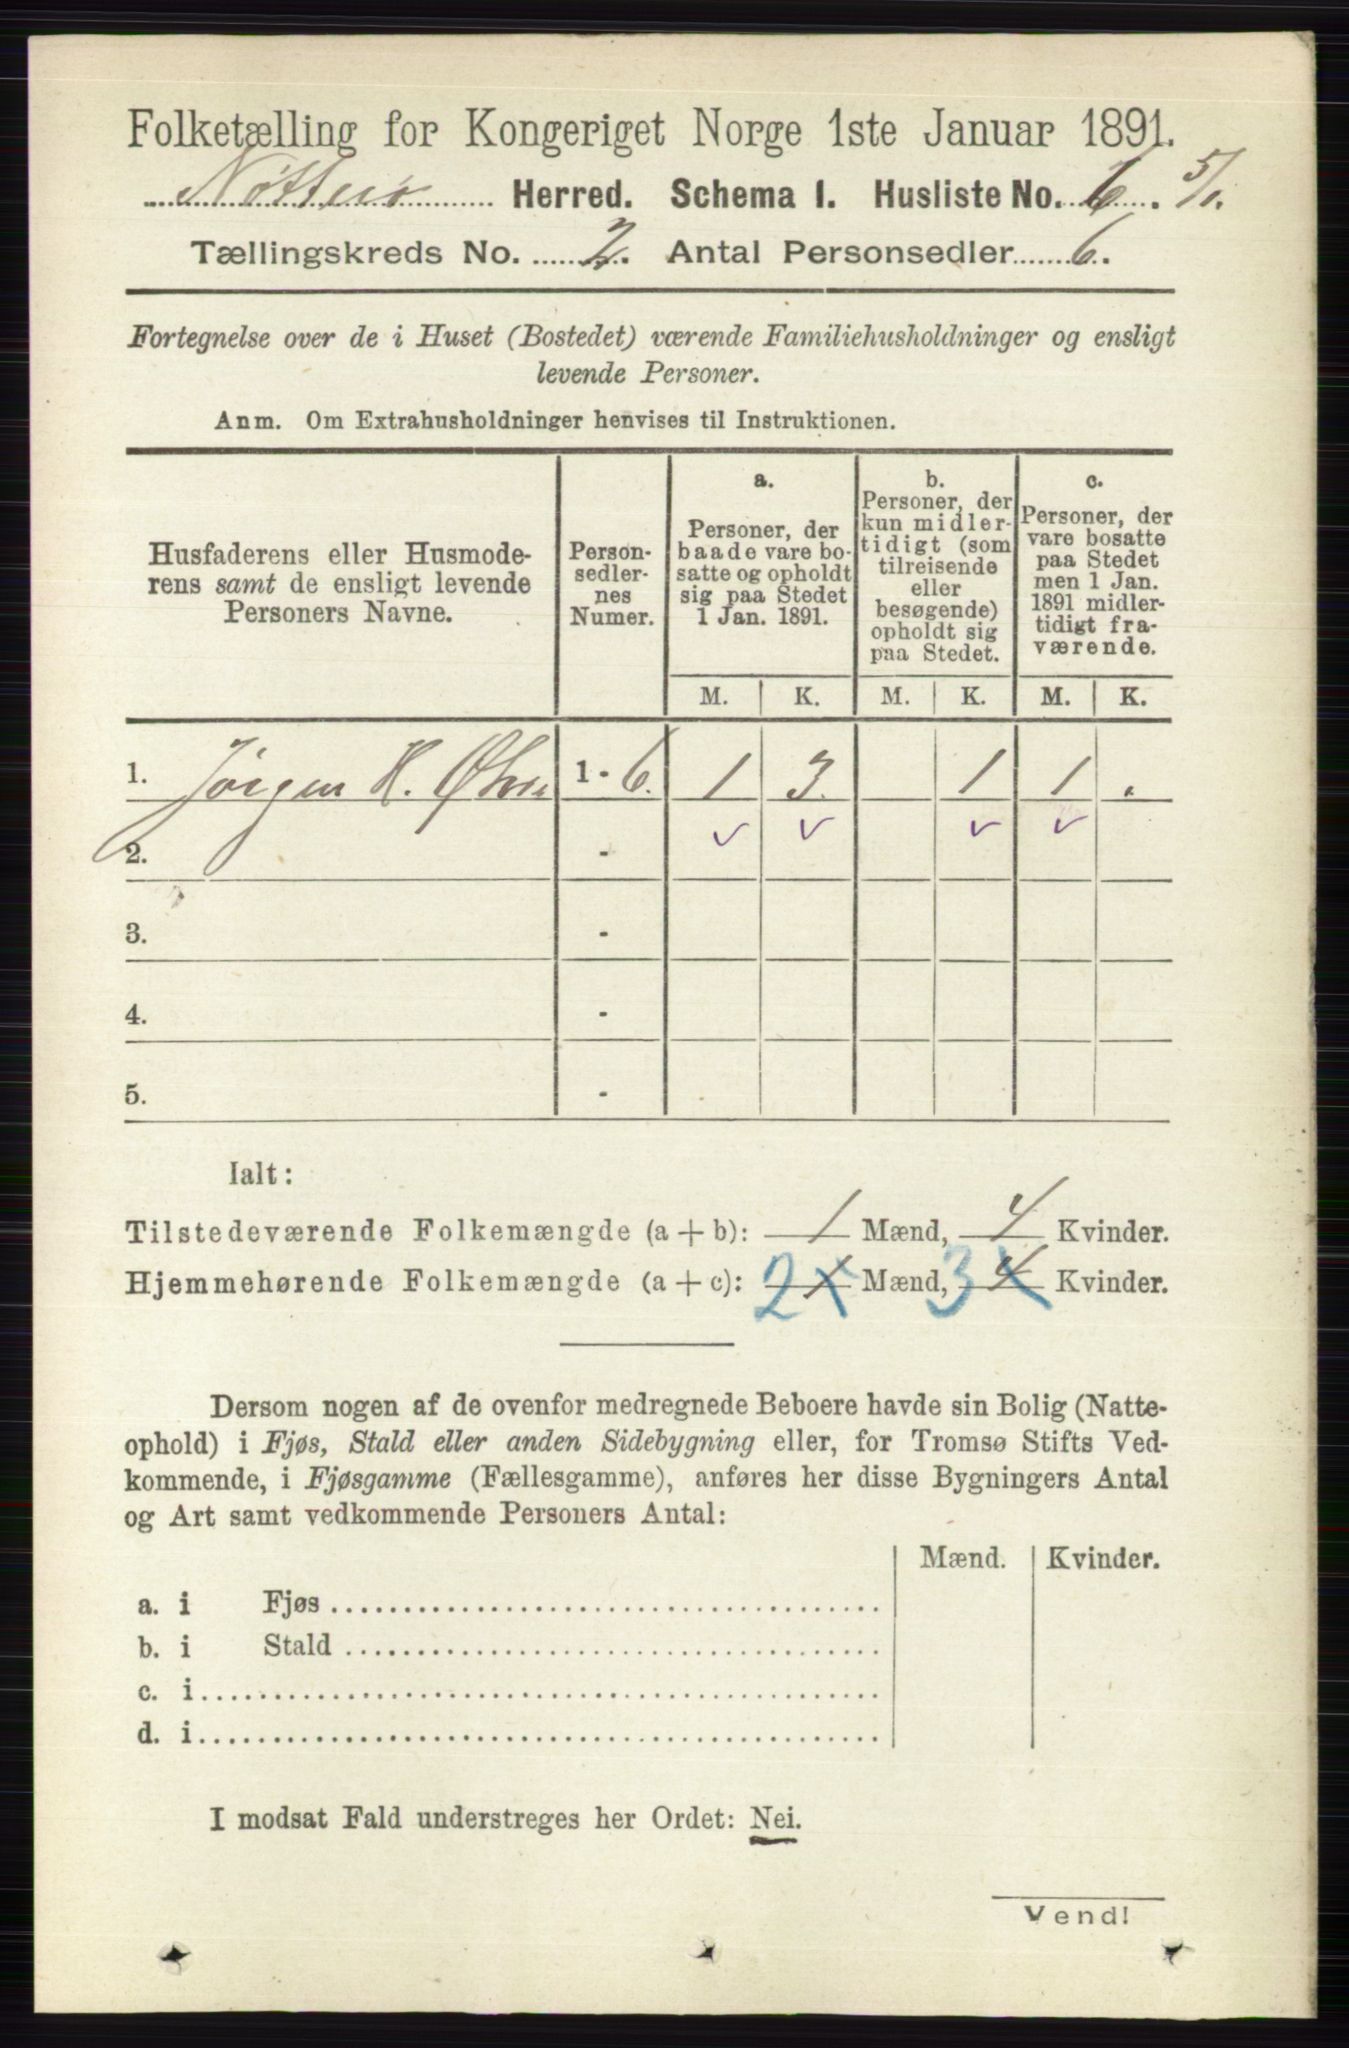 Folketælling for Kongeriget Norge 1ste Januar 1891.
Nøtterø Herred. Schema I. Husliste No. 6. 5/1.
Tællingskreds No. 2. Antal Personsedler 6.
Fortegnelse over de i Huset (Bostedet) værende Familiehusholdninger og ensligt
levende Personer.
Anm. Om Extrahusholdninger henvises til Instruktionen.
Husfaderens eller Husmode-
rens samt de ensligt levende
Personers Navne.
Person-
sedler-
nes
Numer.
a.
Personer, der
baade vare bo-
satte og opholdt
sig paa Stedet
1 Jan. 1891.
b.
Personer, der
kun midler-
tidigt (som
tilreisende
eller
besøgende)
opholdt sig
paa Stedet.
c.
Personer, der
vare bosatte
paa Stedet
men 1 Jan.
1891 midler-
tidigt fra-
værende.
M. K. M. K. M. K.
1. Jørgen H. 1 - 6. 1 3. 1 1 .
2. -
3. -
4. -
5. -
Ialt:
Tilstedeværende Folkemængde (a + b): 1 Mænd, 4 Kvinder.
Hjemmehørende Folkemængde (a + c): 2 1 Mænd, 3 4 Kvinder.
Dersom nogen af de ovenfor medregnede Beboere havde sin Bolig (Natte-
ophold) i Fjøs, Stald eller anden Sidebygning eller, for Tromsø Stifts Ved-
kommende, i Fjøsgamme (Fællesgamme), anføres her disse Bygningers Antal
og Art samt vedkommende Personers Antal:
Mænd. Kvinder.
a. i Fjøs
b. i Stald
c. i
d. i
I modsat Fald understreges her Ordet: Nei.
Vend!